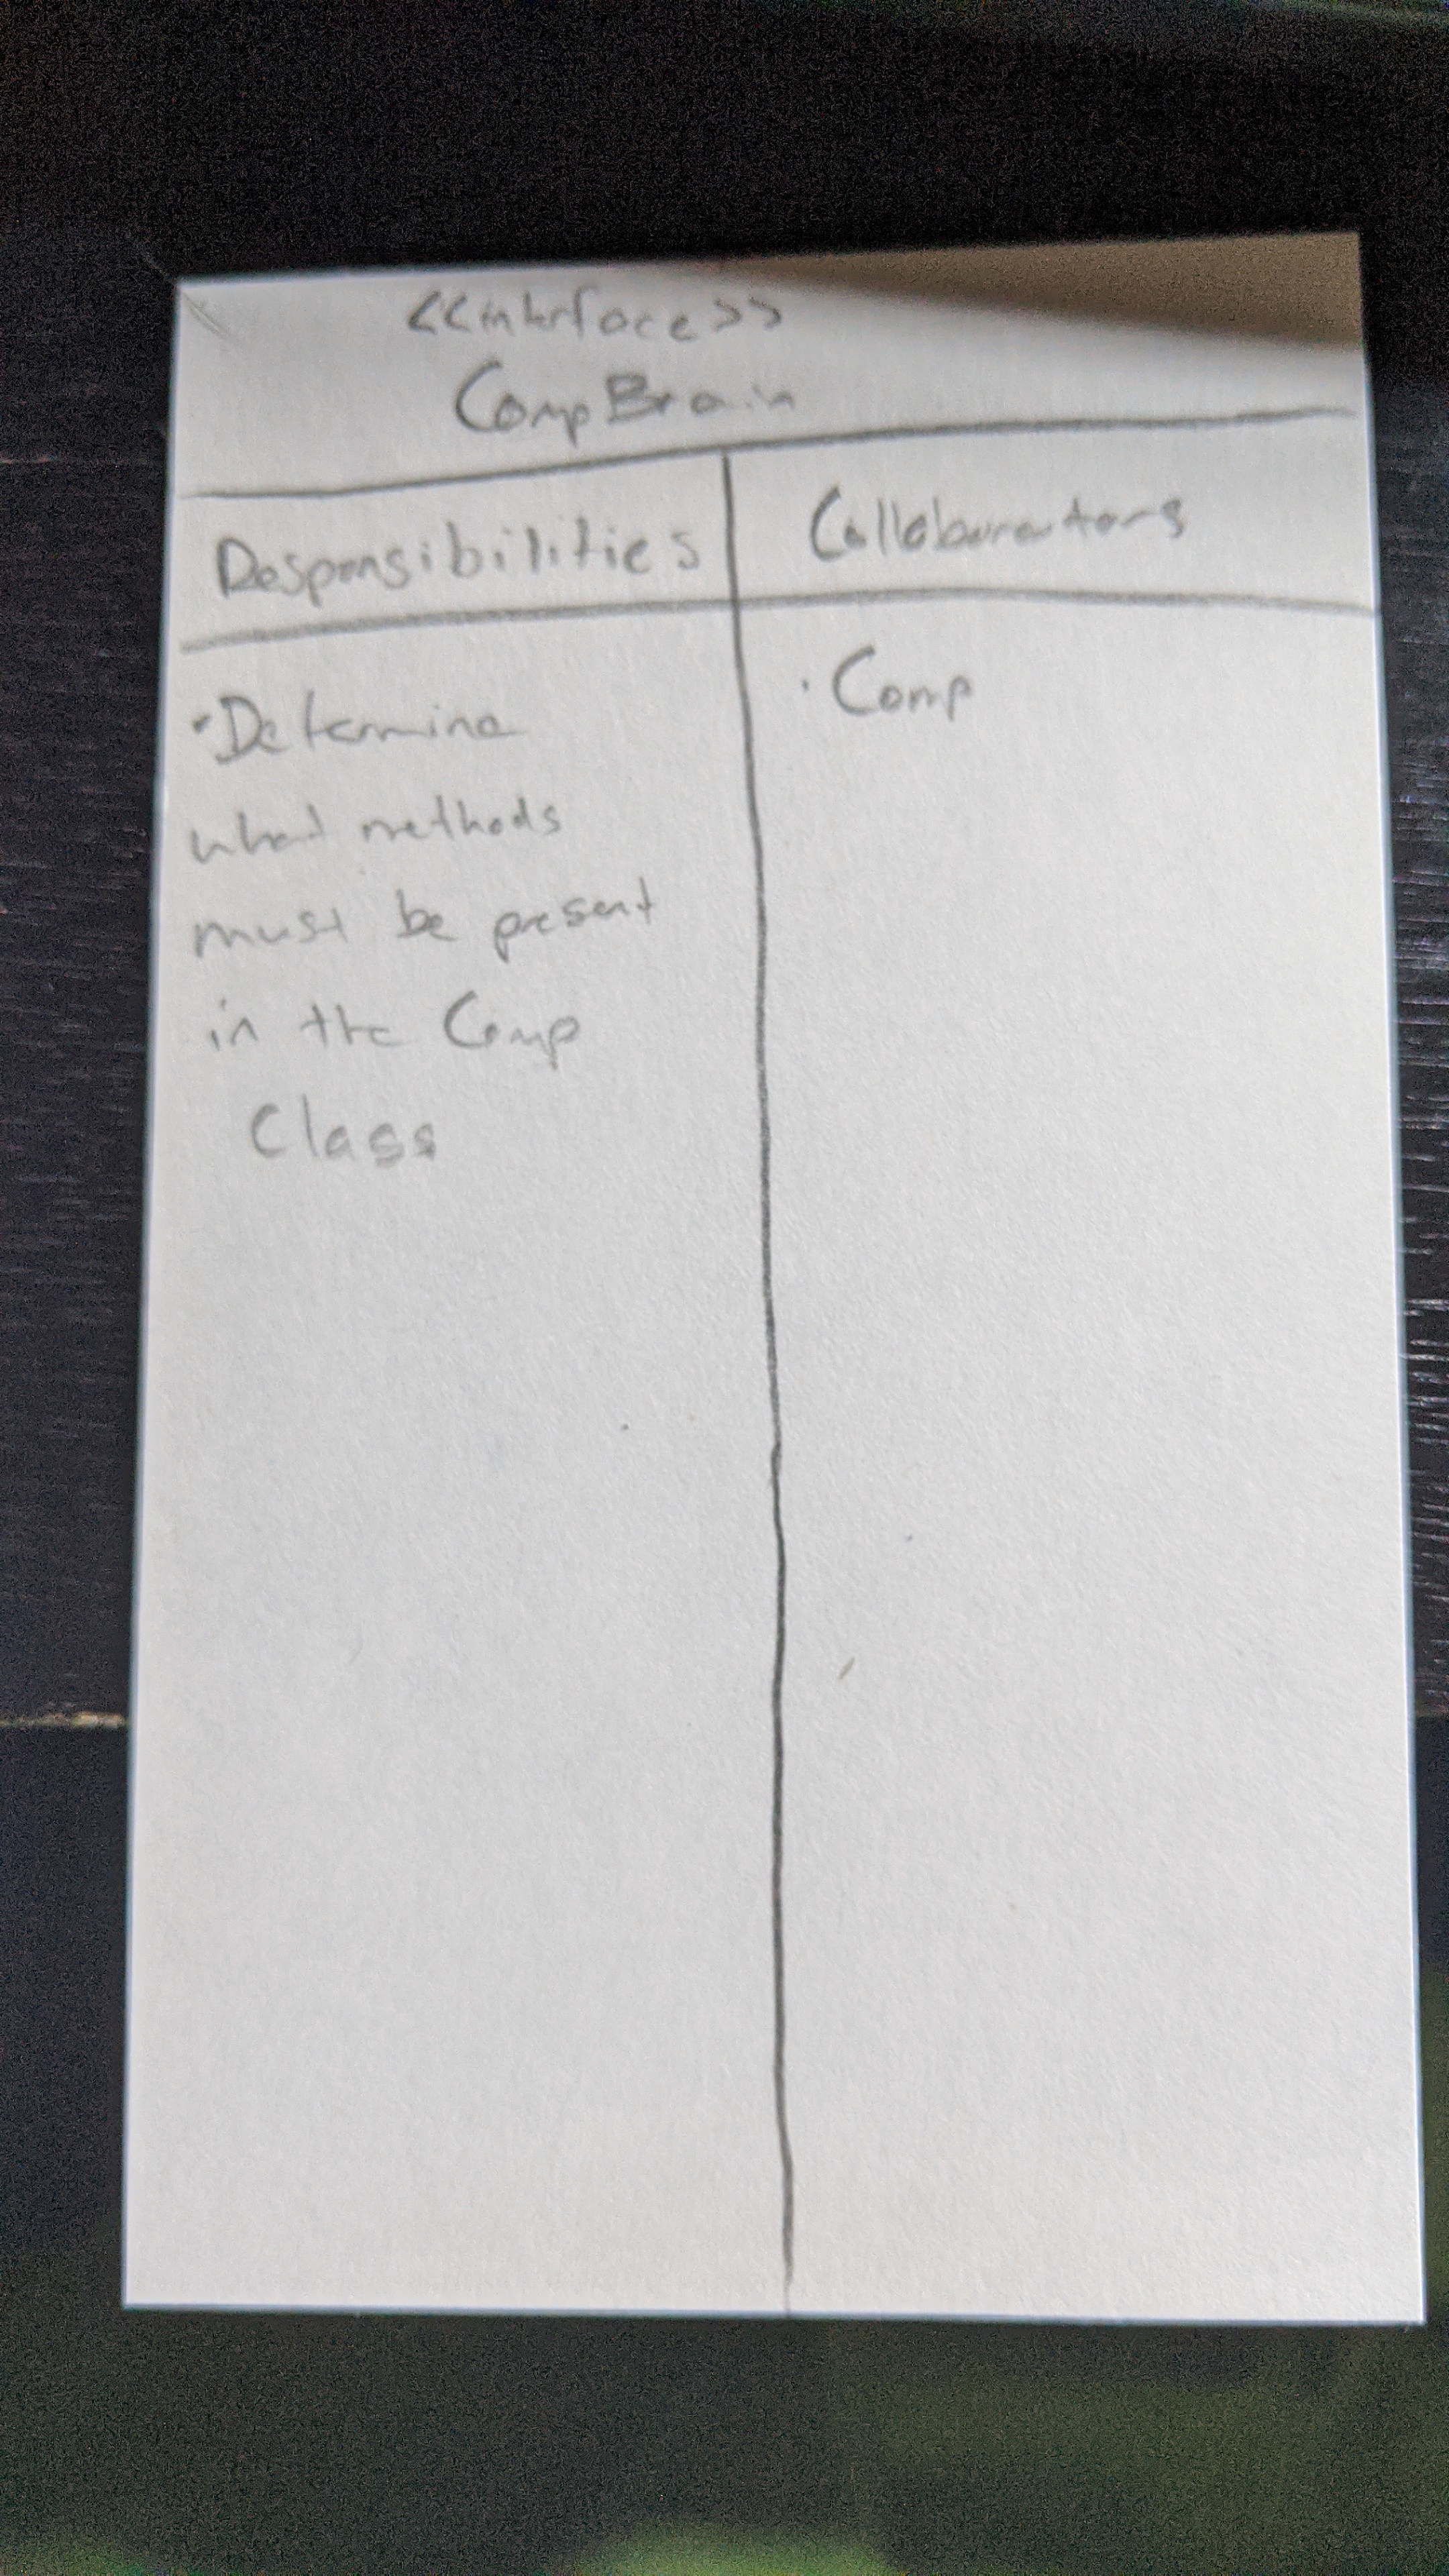 <<interface>>
CompBrain
Responsibilities
Collaborators
· Determine
what methods
must be present
in the Comp
Class
· Comp